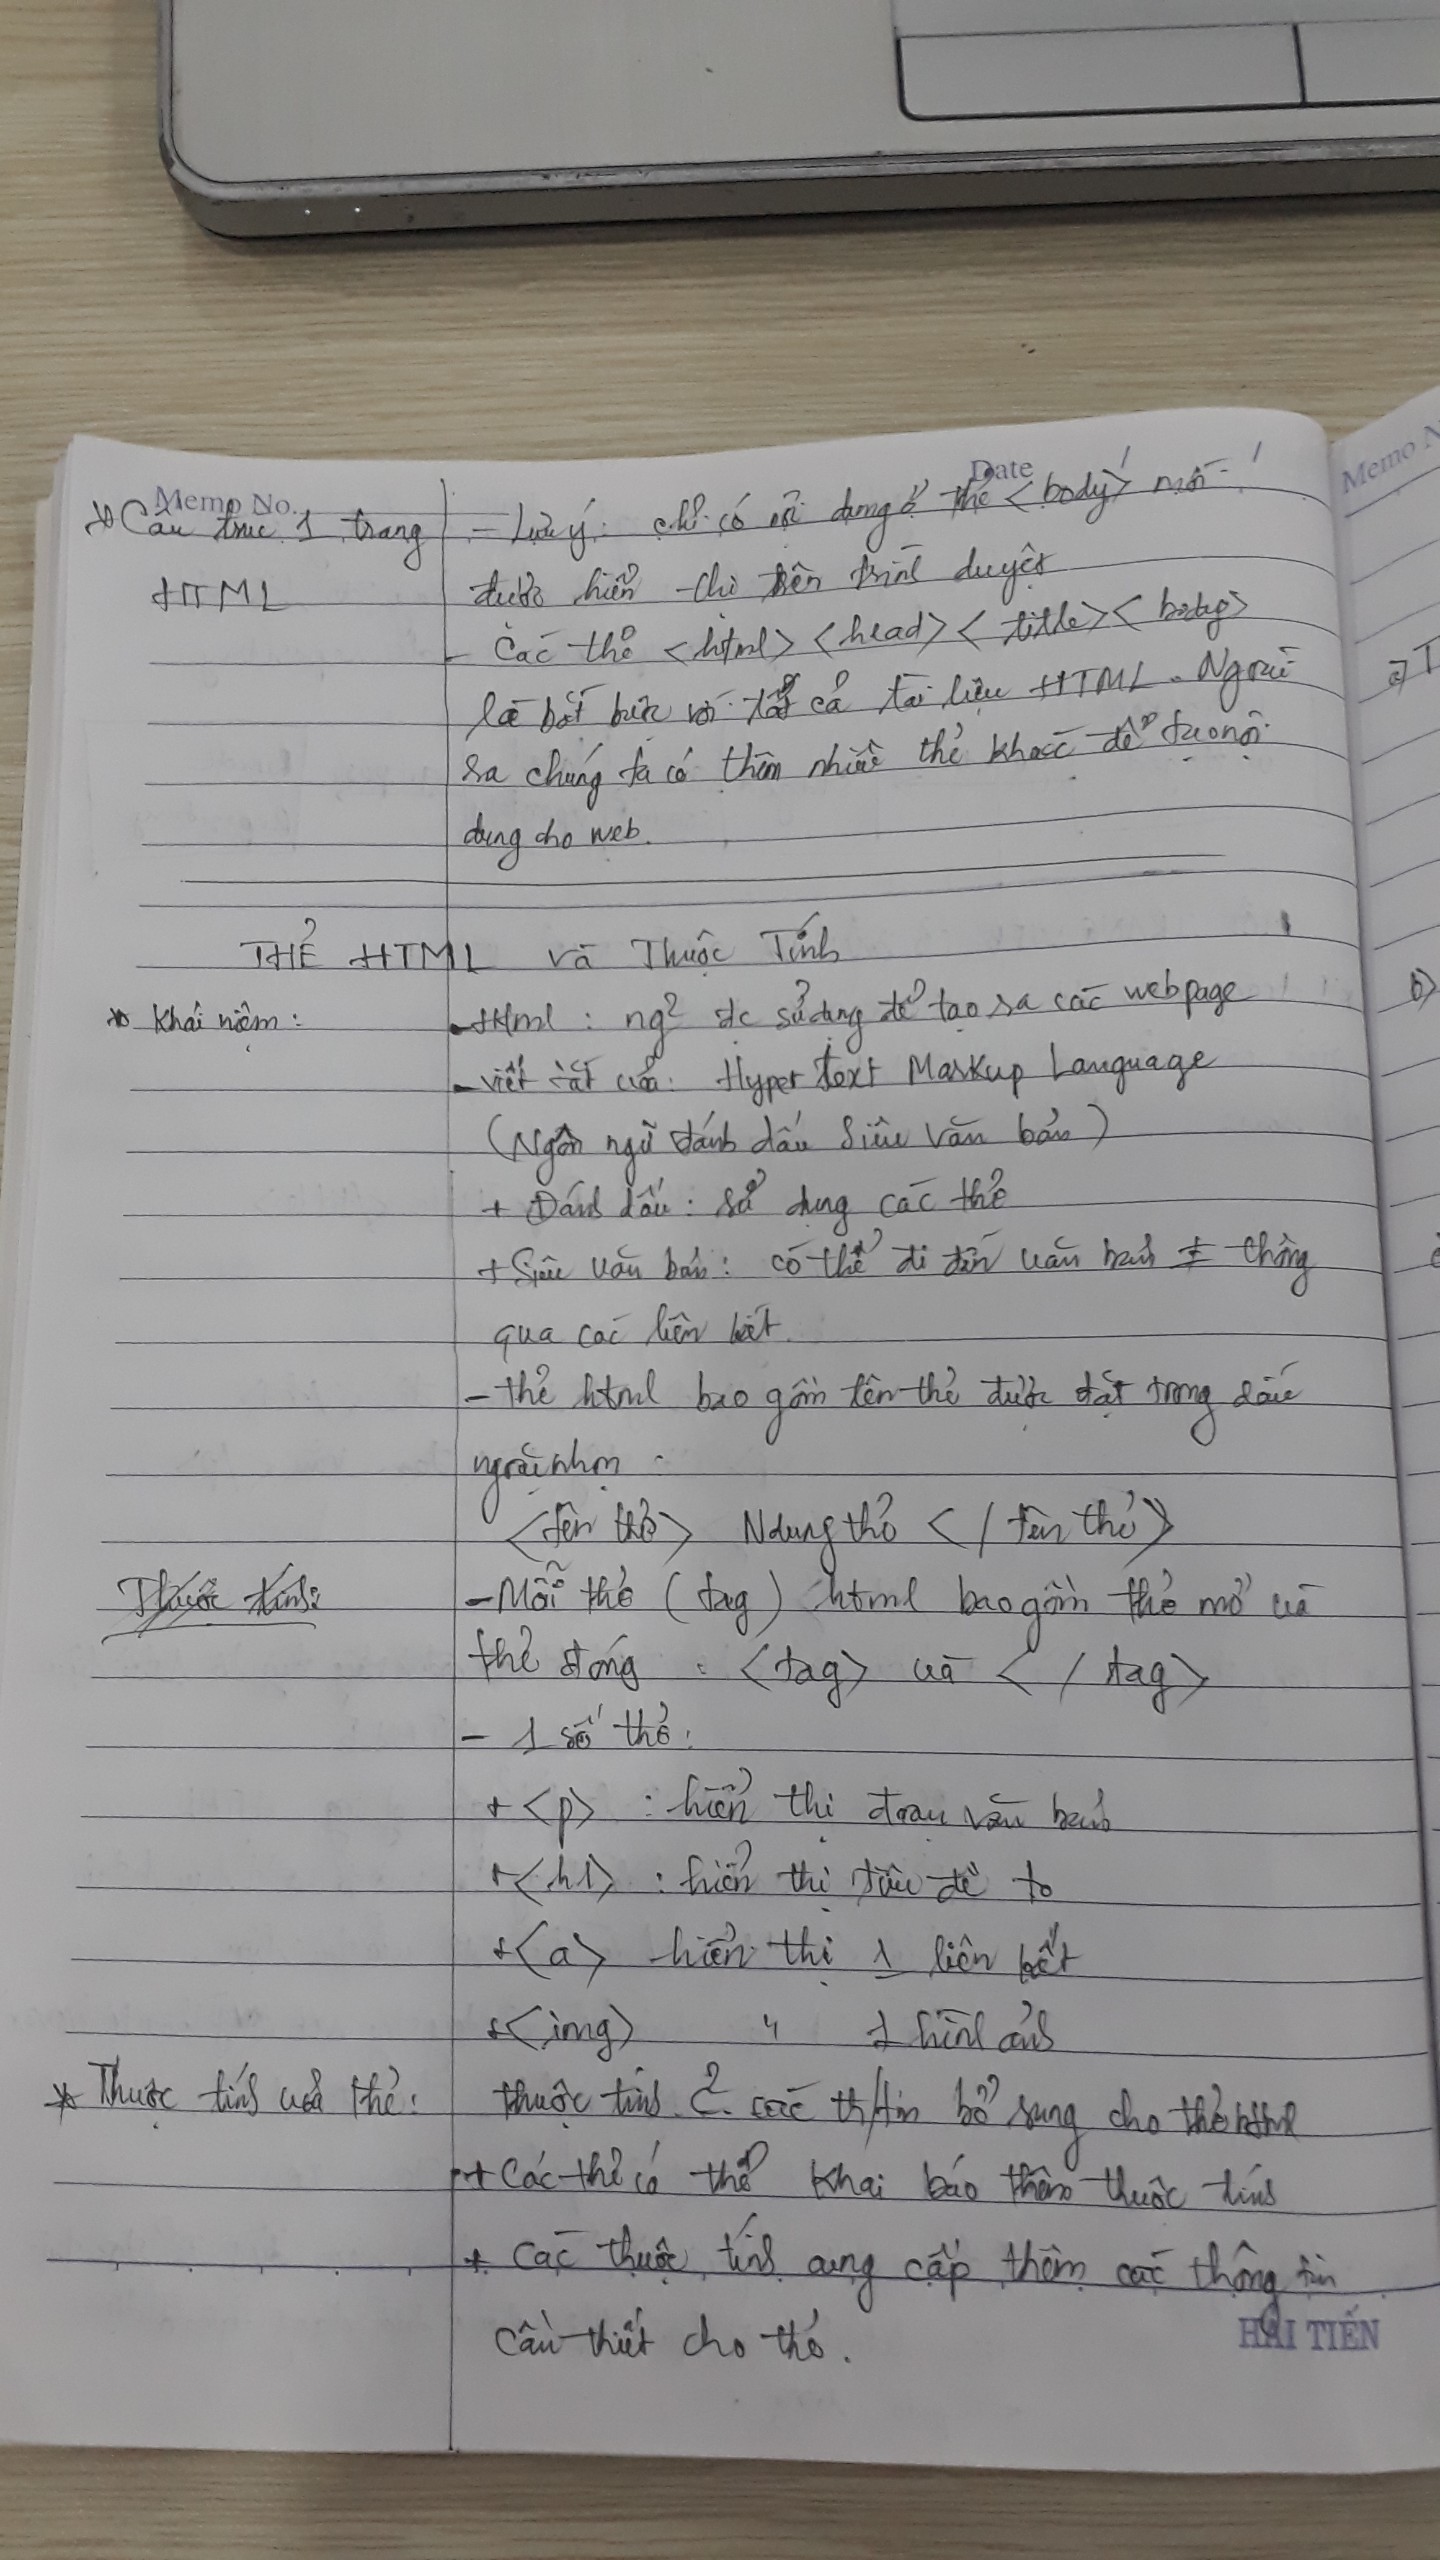 Memo No.
Date
Memo N
* Cấu trúc 1 trang
HTML
- Lưu ý: chỉ có nội dung ở thẻ <body> mới
được hiển thị trên trình duyệt
- Các thẻ <html> <head> <title> <body>
là bắt buộc với tất cả tài liệu HTML. Ngoài
ra chúng ta có thêm nhiều thẻ khác để tạo nội
dung cho web.
THẺ HTML và Thuộc Tính
* Khái niệm:
- Html : ng² đc sử dụng để tạo ra các webpage
- viết tắt của: Hyper text Markup Language
(Ngôn ngữ đánh dấu siêu văn bản)
+ Đánh dấu: sử dụng các thẻ
+ Siêu văn bản: có thể đi đến văn bản ≠ thông
qua các liên kết.
- thẻ html bao gồm tên thẻ được đặt trong dấu
ngoặc nhọn :
<tên thẻ> Ndung thẻ </tên thẻ>
Thuộc tính:
- Mỗi thẻ (tag) html bao gồm thẻ mở và
thẻ đóng : <tag> và </tag>
- 1 số thẻ:
+ <p> : hiển thị đoạn văn bản
+ <h1> : hiển thị tiêu đề to
+ <a> hiển thị 1 liên kết
+ <img> " 1 hình ảnh
* Thuộc tính của thẻ:
thuộc tính các th/tin bổ sung cho thẻ html
+ Các thẻ có thể khai báo thêm thuộc tính
+ Các thuộc tính cung cấp thêm các thông tin
cần thiết cho thẻ.
HẢI TIẾN
a) T
b)